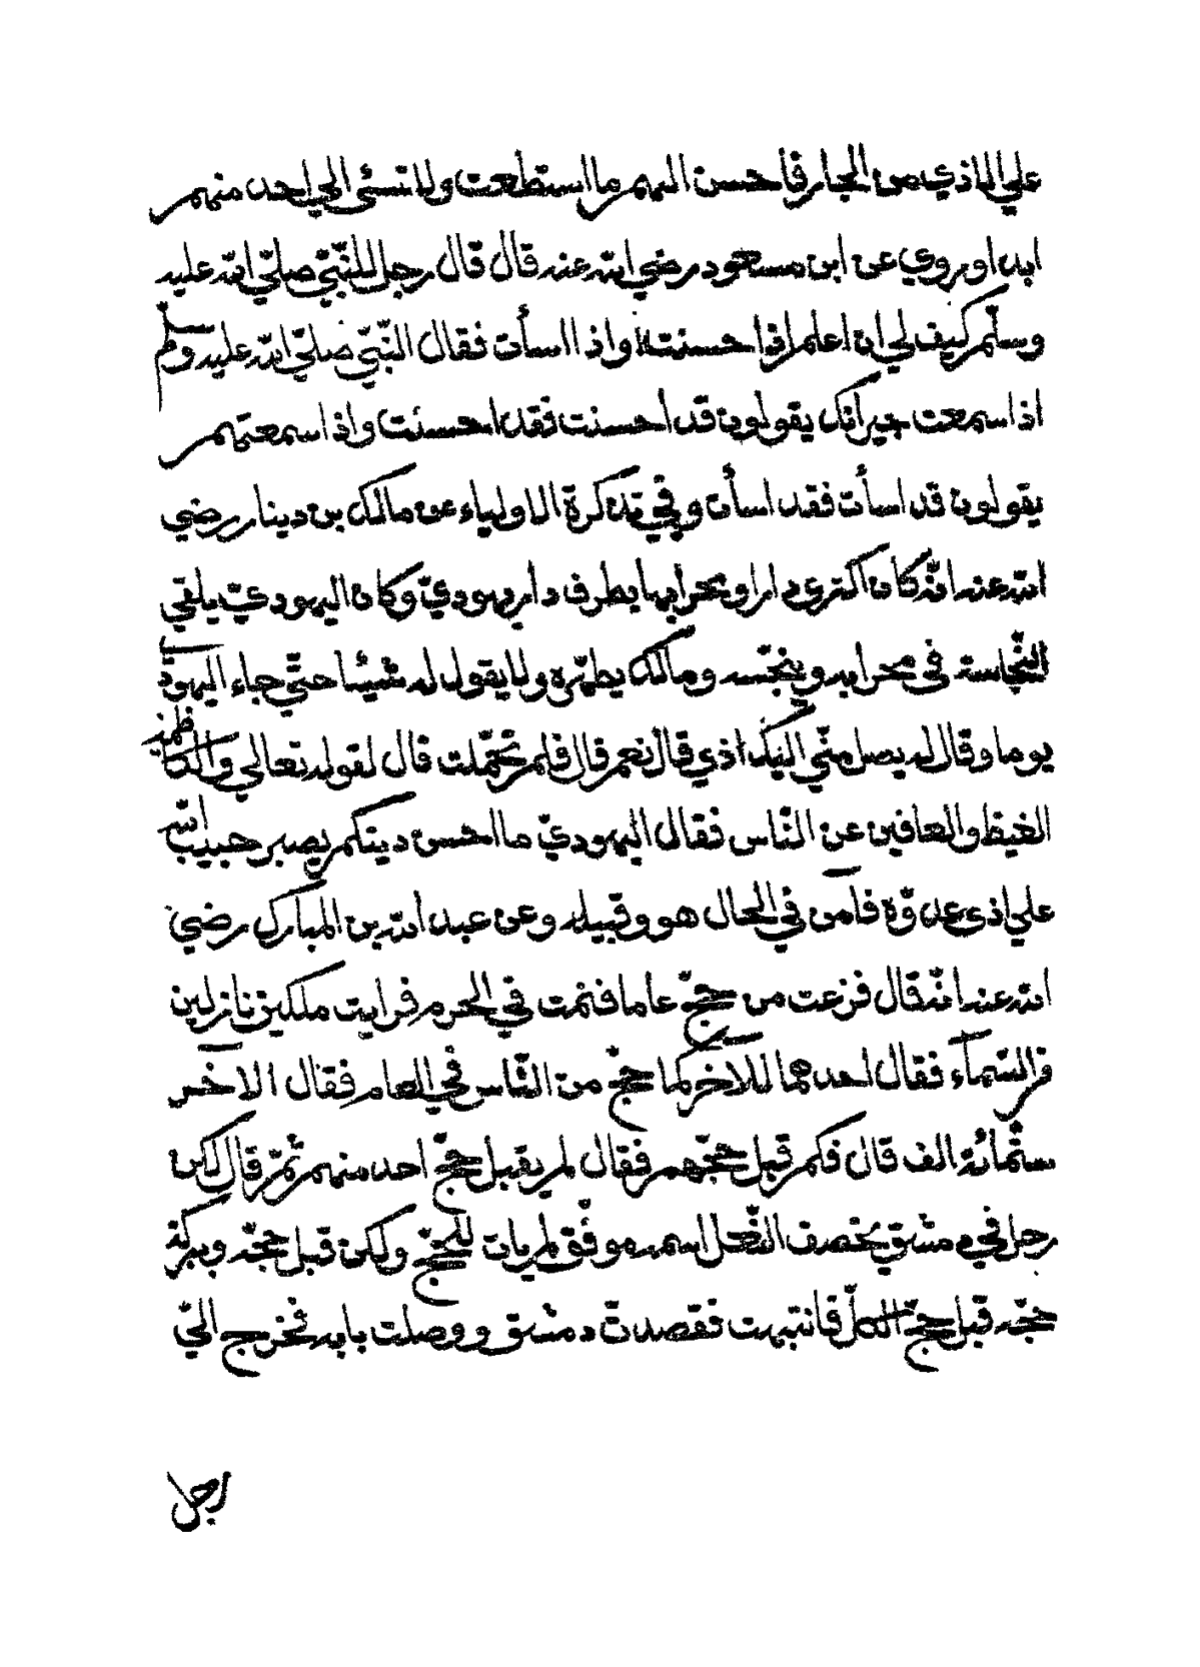 علي الاذي من الجار فأحسن اليهم ما استطعت ولا تسئ الي احد منهم
ابدا وروي عن ابن مسعود رضي الله عنه قال قال رجل للنبّي صلّي الله عليه
وسلّم كيف لي ان اعلم اذا احسنت واذا اسأت فقال النّبّي صلّي الله عليه وسلّم
اذا سمعت جيرانك يقولون قد أحسنت فقد احسنت واذا سمعتهم
يقولون قد اسأت فقد اسأت وفي تذكرة الاولياء عن مالك بن دينار رضي
الله عنه انّه كان اكتري دارا ومحرابها بطرف دار يهوديّ وكان اليهوديّ يلقي
النّجاسة في محرابه وينجّسه ومالك يطهّره ولا يقول له شيئا حتّي جاء اليهوديّ
يوما وقال له يصل منّي اليك اذي قال نعم قال فلم تحمّلت قال لقوله تعالي والكاظمين
الغيظ والعافين عن النّاس فقال اليهوديّ ما احسن دينكم يصبر حبيب الله
علي اذي عدوّه فآمن في الحال هو وقبيله وعن عبد الله بن المبارك رضي
الله عنه انّه قال فزعت من حجّ عاما فنمت في الحرم فرايت ملكين نازلين
من السّمآء فقال احدهما للآخر كما حجّ من النّاس في العام فقال الاخر
ستّمائة الف قال فكم قبل حجّهم فقال لم يقبل حجّ احد منهم ثمّ قال لكن
رجل في دمشق يخصف النّعل اسمه موفّق لم يات للحجّ ولكن قبل حجّه وببركة
حجّه قبل حجّ الكلّ فانتبهت فقصدتّ دمشق ووصلت بابه فخرج اليّ
رجل